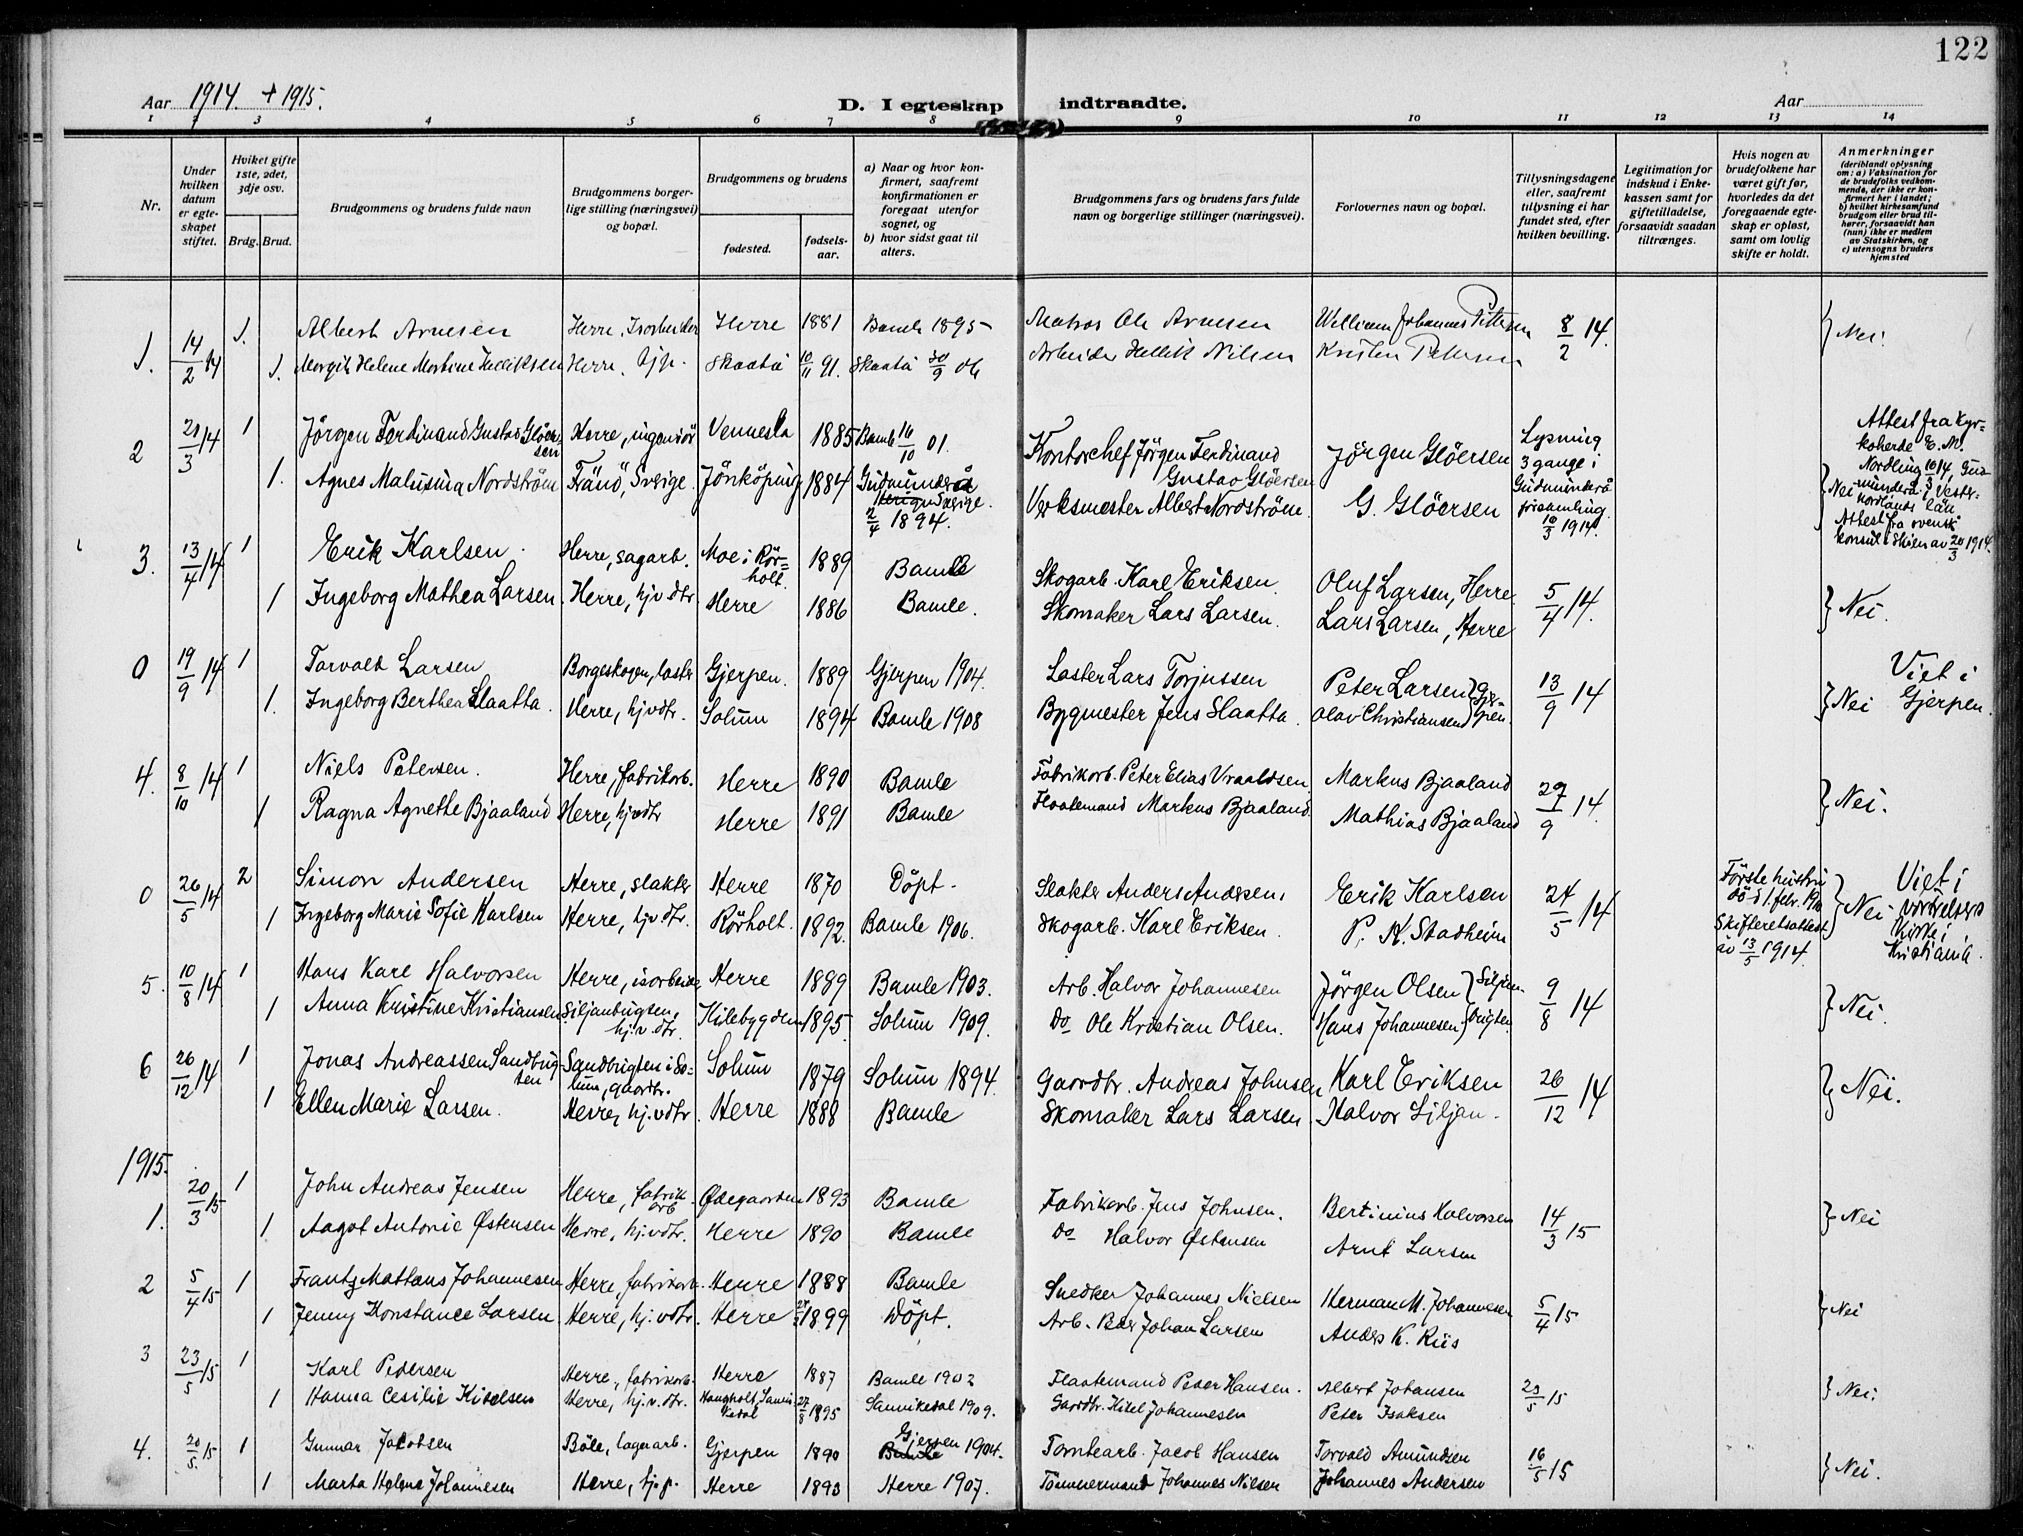 122
Aar 1914. + 1915.
D. I egteskap indtraadte.
Aar
1 2 3 4 5 6 7 8 9 10 11 12 13 14
Nr.
Under hvilken datum er egteskapet stiftet.
Hviket gifte 1ste, 2det, 3dje osv.
Brdg. Brud.
Brudgommens og brudens fulde navn
Brudgommens borgerlige stilling (næringsvei) og bopæl.
Brudgommens og brudens
fødested.
fødselsaar.
a) Naar og hvor konfirmert, saafremt konfirmationen er foregaat utenfor sognet, og
b) hvor sidst gaat til alters.
Brudgommens fars og brudens fars fulde navn og borgerlige stillinger (næringsvei).
Forlovernes navn og bopæl.
Tillysningsdagene eller, saafremt tillysning ei har fundet sted, efter hvilken bevilling.
Legitimation for indskud i Enkekassen samt for giftetilladelse, forsaavidt saadan tiltrænges.
Hvis nogen av brudefolkene har været gift før, hvorledes da det foregaaende egteskap er opløst, samt om lovlig skifte er holdt.
Anmerkninger (deriblandt oplysning om: a) Vaksination for de brudefolks vedkommende, der ikke er konfirmert her i landet; b) hvilket kirkesamfund brudgom eller brud tilhører, forsaavidt han (hun) ikke er medlem av Statskirken, og c) utensogns bruders hjemsted
1. 14/2 14 1. Albert Arnesen Herre, Isarbeider Herre 1881 Bamle 1895 Matros Ole Arnesen William Johannes Pettersen 8/2 14. } Nei.
1. Margit Helene Martine Helliksen Herre, hjp. Skaatø 10/11 91. Skaatø 30/9 06 Arbeider Hellik Nilsen Kristen Pettersen
2 21/3 14 1 Jörgen Ferdinand Gustav Glöersen Herre, ingeniör Vennesla 1885 Bamle 16/10 01. Kontorchef Jörgen Ferdinand Gustav Glöersen Jörgen Glöersen Lysning 3 gange i Gudmunderå forsamling 10/3 1914. } Nei
1. Agnes Malvina Nordström Fränö, Sverige. Jönköping 1884 Gudmunderå Sverige. 2/4 1894. Verksmester Albert Nordström. G. Glöersen
Attest fra Kyrkoherde E. M. Nordling 10/3 14, Gudmunderå i Vesternorrlands län
Attest fra svensk konsul i Skien av 20/3 1914.
3. 13/4 14 1 Erik Karlsen. Herre, sagarb. Moe i Rörholt 1889 Bamle Skogarb. Karl Eriksen. Oluf Larsen, Herre 5/4 14. } Nei.
1 Ingeborg Mathea Larsen. Herre, hjv dtr Herre 1886 Bamle. Skomaker Lars Larsen. Lars Larsen, Herre
0 19/9 14 1 Torvald Larsen Borgeskogen, laster Gjerpen. 1889 Gjerpen 1904. Laster Lars Torjussen Peter Larsen } Gjerpen. 13/9 14 } Nei Viet i Gjerpen.
1. Ingeborg Berthea Slaatta. Herre, hjvdtr. Solum 1894 Bamle 1908 Bygmester Jens Slaatta. Olav Christiansen
4. 8/10 14 1 Niels Petersen. Herre, fabrikarb. Herre 1890 Bamle Fabrikarb. Peter Elias Vraaldsen Markus Bjaaland 27/9 14. } Nei.
1 Ragna Agnethe Bjaaland Herre, hjvdtr Herre 1891 Bamle Flaatemand Markus Bjaaland. Mathias Bjaaland
0 26/5 14 2 Simon Andersen Herre, slakter Herre 1870 Döpt. Slakter Anders Andersen, Erik Karlsen 24/5 14 Förste hustru död 1. febr. 1910 Skifteretsattest av 13/5 1914. } Nei. Viet i vor Frelsers Kirke i Kristiania.
1 Ingeborg Marie Sofie Karlsen Herre, hjv dtr. Rörholt. 1892. Bamle 1906. Skogarb. Karl Eriksen. P. K. Stadheim
5. 10/8 14 1 Hans Karl Halvorsen Herre, isarbeider Herre 1889 Bamle 1903. Arb. Halvor Johannesen Jörgen Olsen } Siljanbrigten 9/8 14 } Nei.
1 Anna Kristine Kristiansen Siljanbrigten, hj.v.dtr. Kilebygden 1895. Solum 1909. Do Ole Kristian Olsen. Hans Johannesen
6 26/12 14 1 Jonas Andreassen Sandbrigten Sandbrigten i Solum, gaardbr. Solum 1879 Solum 1894. Gaardbr. Andreas Johnsen, Karl Eriksen 26/12 14 } Nei.
1 Ellen Marie Larsen. Herre, hj.vdtr. Herre 1888 Bamle Skomaker Lars Larsen. Halvor Siljan.
1915.
1. 20/3 15 1 John Andreas Jensen Herre, fabrikarb. Ødegaarden 1893 Bamle Fabrikarb. Jens Johnsen. Bertinius Halvorsen 14/3 15 } Nei
1 Aagot Antonie Østensen Herre, hj.vdtr. Herre 1890 Bamle Do Halvor Østensen Arnt Larsen
2 5/4 15 1 Frantz Mattæus Johannesen Herre, fabrikarb. Herre 1888 Bamle Snedker Johannes Nielsen Herman M. Johannesen 5/4 15 } Nei
1 Jenny Konstance Larsen Herre, hj.vdtr. Herre 1899 Döpt. Arb. Johan Larsen Anders K. Riis
3 23/5 15 1 Karl Pedersen Herre, fabrikarb. Herre 1887 Bamle 1902 Flaatemand Peder Hansen. Albert Johansen 23/5 15 } Nei.
1 Hanna Cesilie Kittelsen Herre, hj.v.dtr. Haugholt, Sannikedal 27/8 1895 Sannikedal 1909. Gaardbr. Kitel Johannesen Peter Isaksen
4. 20/5 15 1 Gunnar Jacobsen Böle, lagerarb. Gjerpen 1890 Gjerpen 1904. Tomtearb. Jacob Hansen Torvald Amundsen 16/5 15 } Nei.
1 Marta Helene Johannesen Herre, hj.p. Herre 1893 Herre 1907. Tömmermand Johannes Nilsen Johannes Andersen